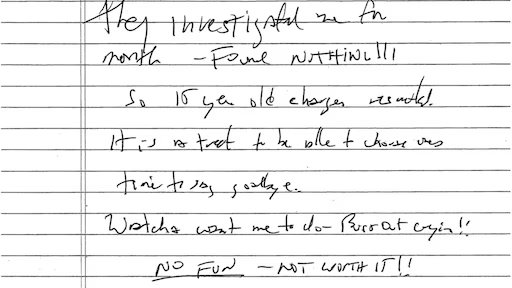 they investigated me for
month – FOUND NOTHING!!!
So 15 year old charges resulted.
It is a treat to be able to choose ones
time to say goodbye.
Watcha want me to do – Burst out cryin!!
NO FUN – NOT WORTH IT!!